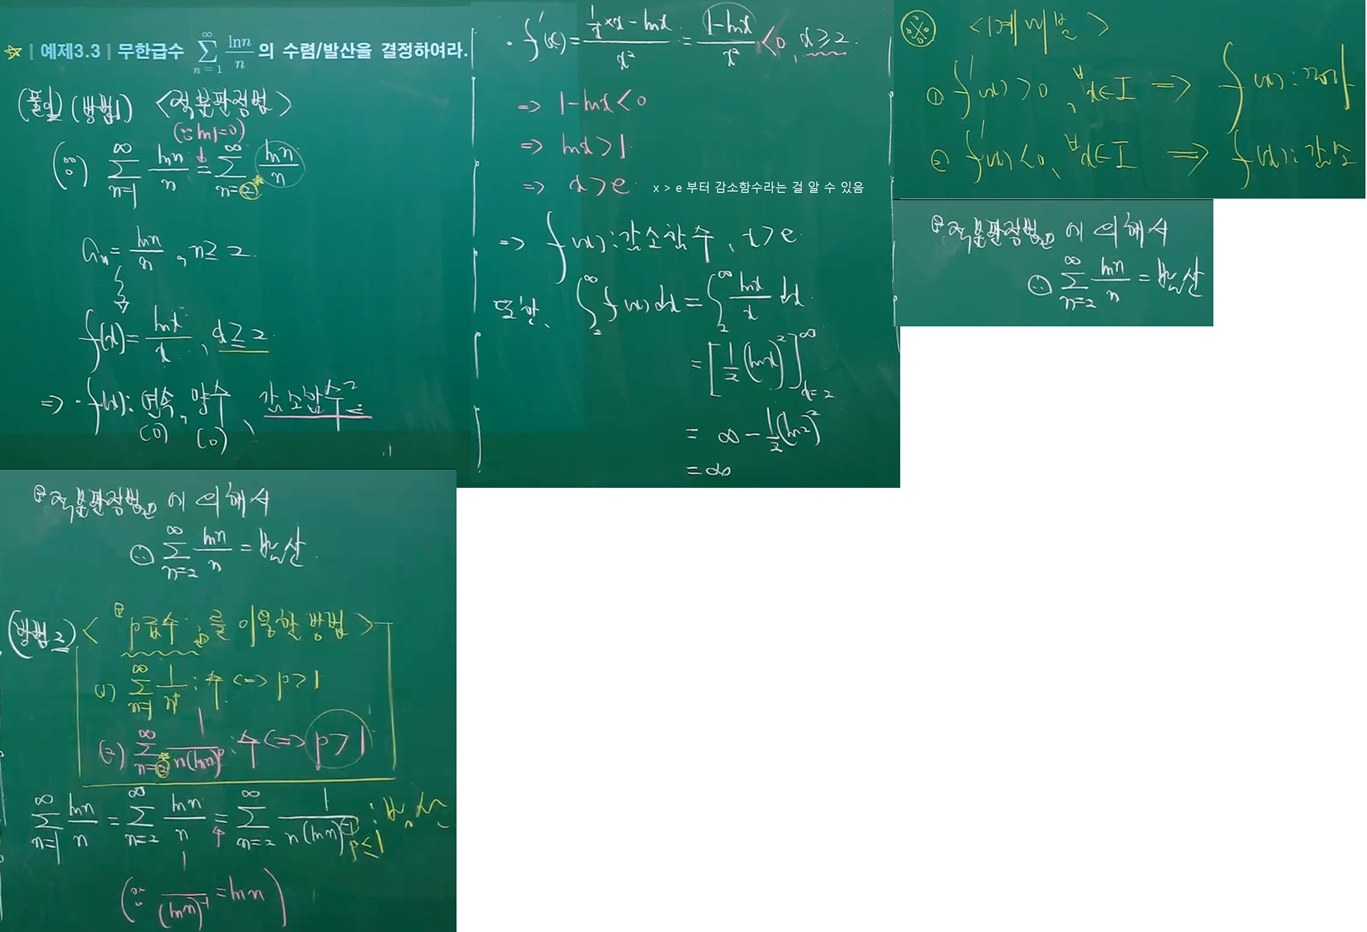 ☆ | 예제3.3 | 무한급수 \sum_{n=1}^{\infty} \frac{\ln n}{n} 의 수렴/발산을 결정하여라.
(풀이) (방법1) <적분판정법>
(∵ ln1=0)
(∵) \sum_{n=1}^{\infty} \frac{\ln n}{n} = \sum_{n=2}^{\infty} \frac{\ln n}{n}
a_n = \frac{\ln n}{n}, n ≥ 2
f(x) = \frac{\ln x}{x}, x ≥ 2
=> · f(x): 연속, 양수, 감소함수?
(0) (0)
· f'(x) = \frac{\frac{1}{x} × x - \ln x}{x^2} = \frac{1 - \ln x}{x^2} < 0, x ≥ 2
=> 1 - ln x < 0
=> ln x > 1
=> x > e
x > e 부터 감소함수라는 걸 알 수 있음
=> f(x): 감소함수, x > e
또한, \int_2^{\infty} f(x) dx = \int_2^{\infty} \frac{\ln x}{x} dx
= [\frac{1}{2} (\ln x)^2]_{x=2}^{\infty}
= ∞ - \frac{1}{2} (\ln 2)^2
= ∞
<1계미분>
① f'(x) > 0, ∀x∈I => f(x): 증가
② f'(x) < 0, ∀x∈I => f(x): 감소
적분판정법 에 의해서
∴ \sum_{n=2}^{\infty} \frac{\ln n}{n} = 발산
적분판정법 에 의해서
∴ \sum_{n=2}^{\infty} \frac{\ln n}{n} = 발산.
(방법2) < p급수 를 이용한 방법 >
(1) \sum_{n=1}^{\infty} \frac{1}{n^p} : 수 <=> p > 1
(2) \sum_{n=2}^{\infty} \frac{1}{n(\ln n)^p} : 수 <=> p > 1
\sum_{n=1}^{\infty} \frac{\ln n}{n} = \sum_{n=2}^{\infty} \frac{\ln n}{n} = \sum_{n=2}^{\infty} \frac{1}{n(\ln n)^{-1}} : 발산
p ≤ 1
(∵ \frac{1}{(\ln n)^{-1}} = ln n)